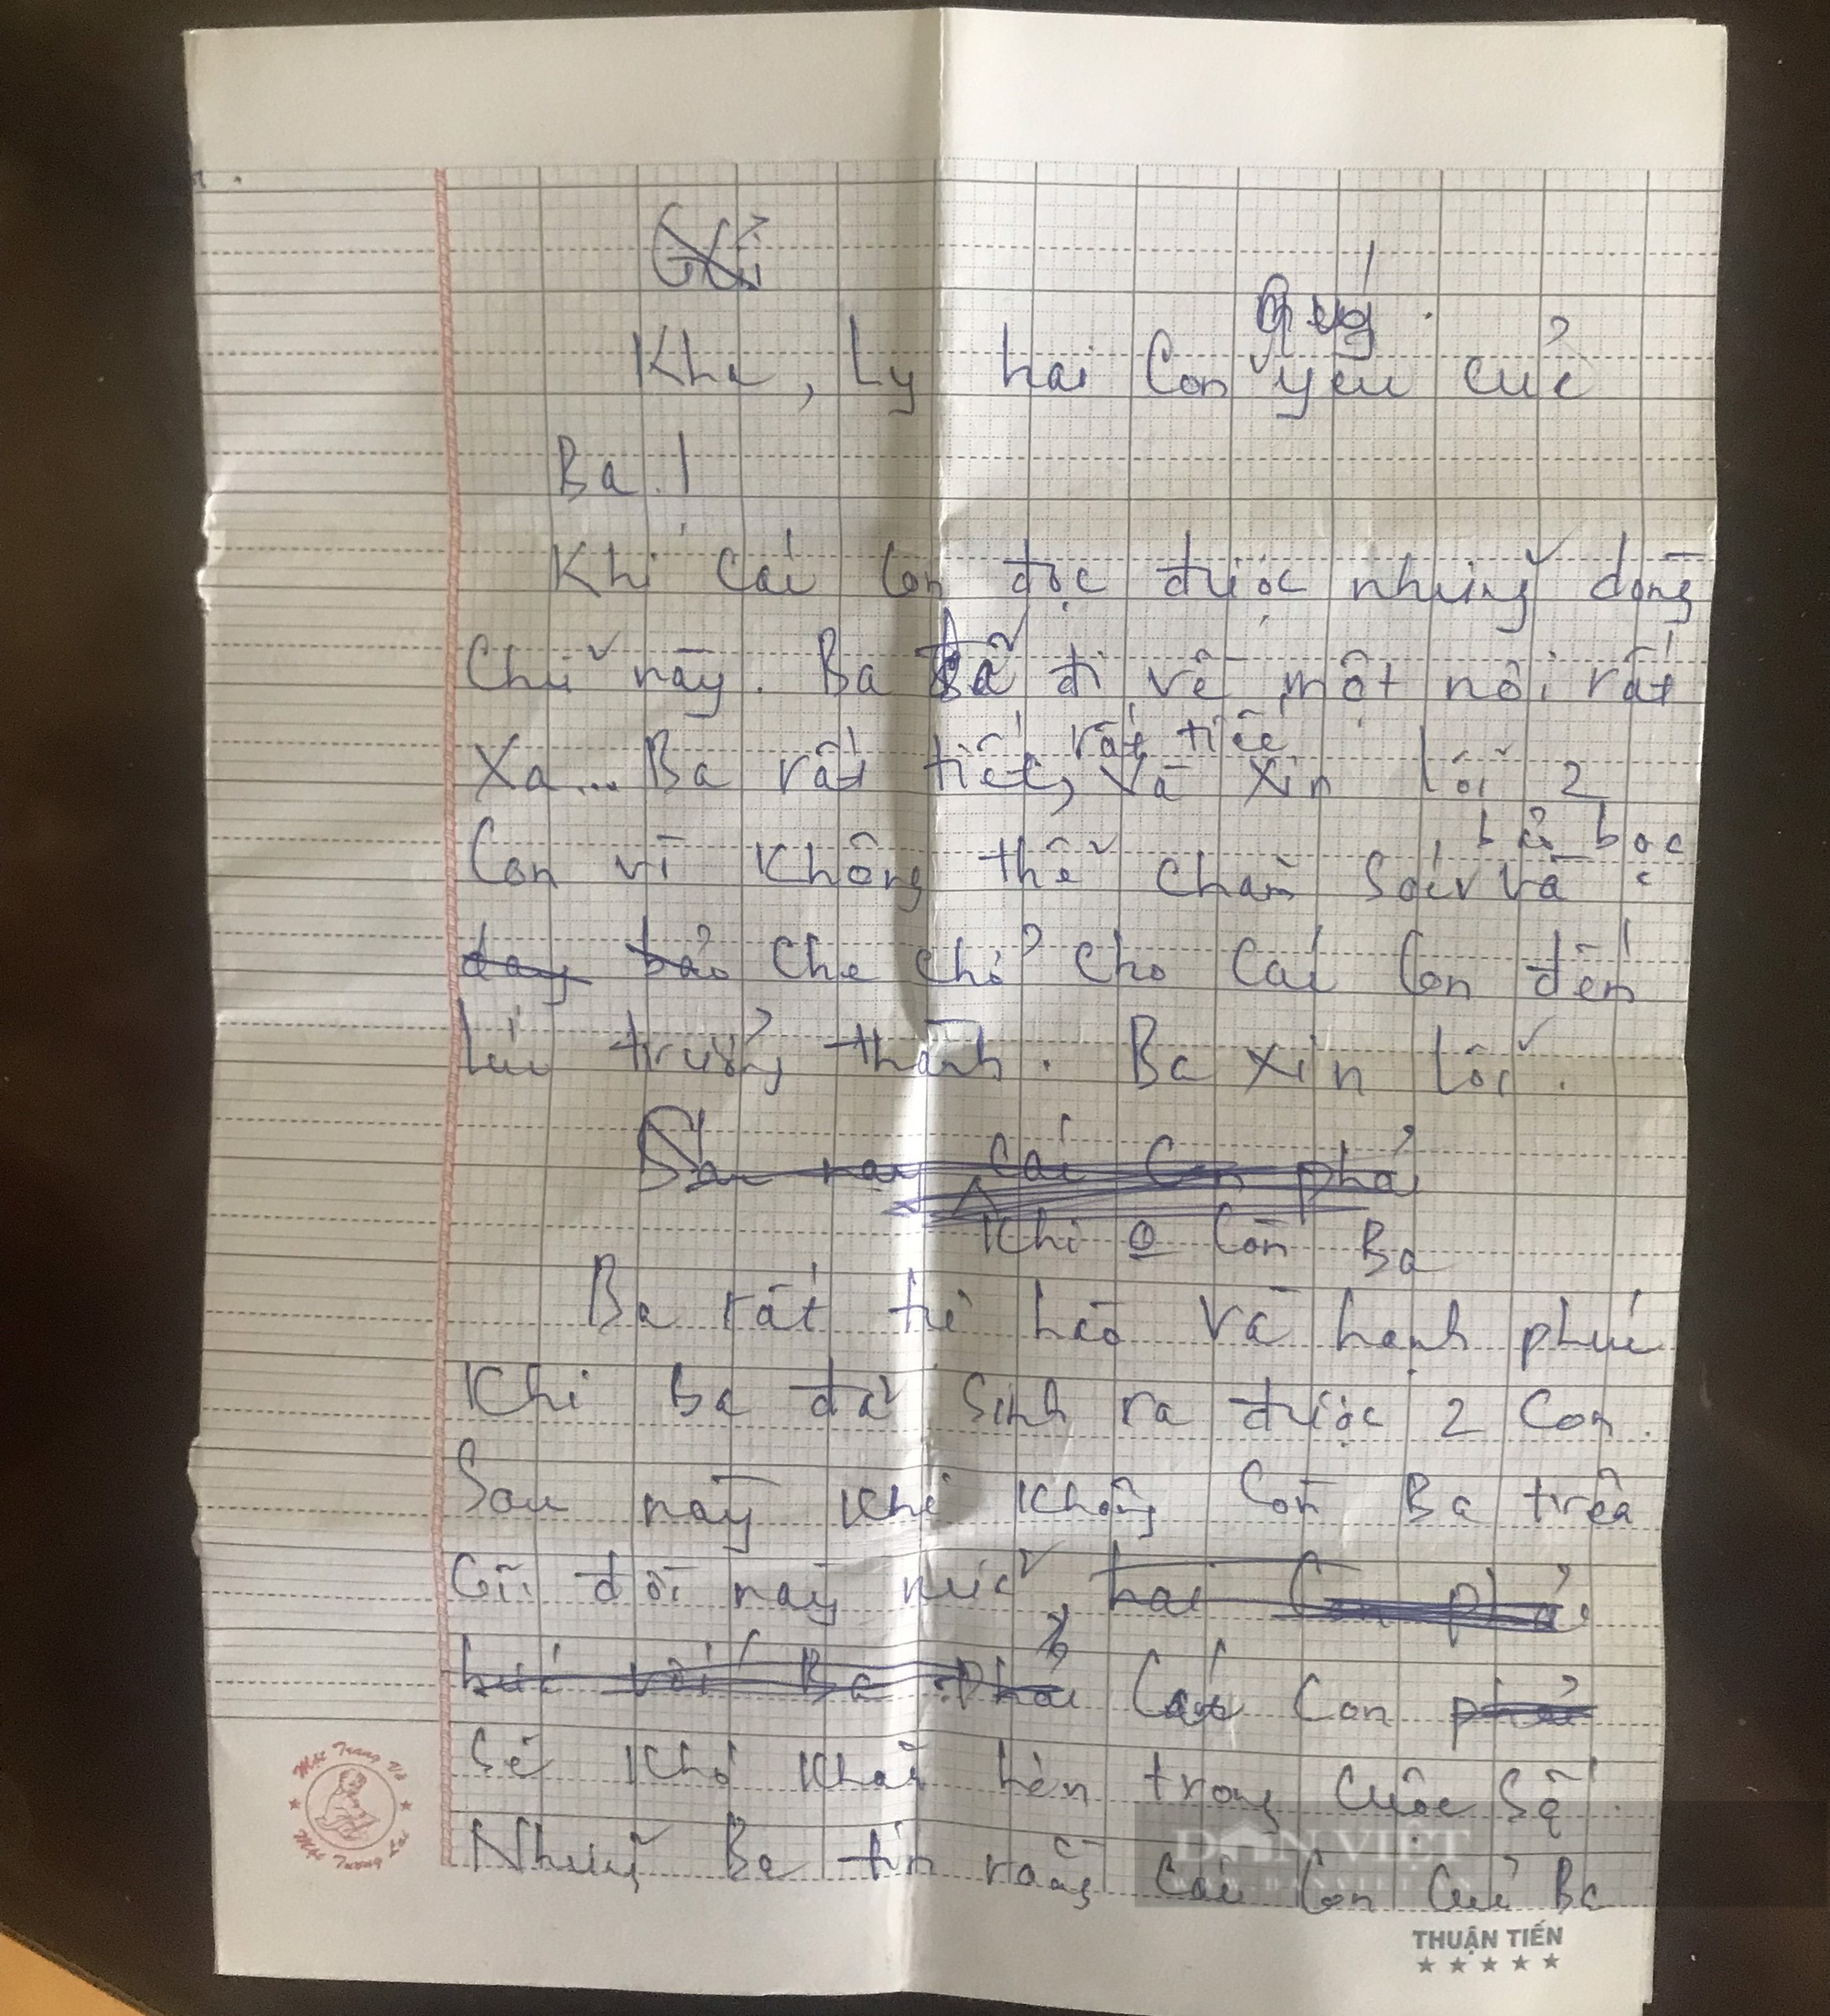 Gửi
quý
Kha, Ly hai Con yêu của
Ba.!
Khi các con đọc được những dòng
Chữ này. Ba đã đi về một nơi rất
rất tiếc
Xa... Ba rất tiếc, và xin lỗi 2
bao bọc
Con vì không thể chăm sóc và
day bảo che chở cho các con đến
lúc trưởng thành. Ba xin lỗi.
Sau nay các Con phải
khi 0 còn Ba
Ba rất tự hào và hạnh phúc
Khi Ba đã sinh ra được 2 Con.
Sau này khi không còn Ba trên
Cõi đời này nữa hai Con phải
Phải Các Con phải
sẽ khó khăn hơn trong cuộc số
Nhưng Ba tin rằng các con của Ba
DÂN VIỆT
WWW.DANVIET.VN
Một Trang Vở
Một Tương Lai
THUẬN TIẾN